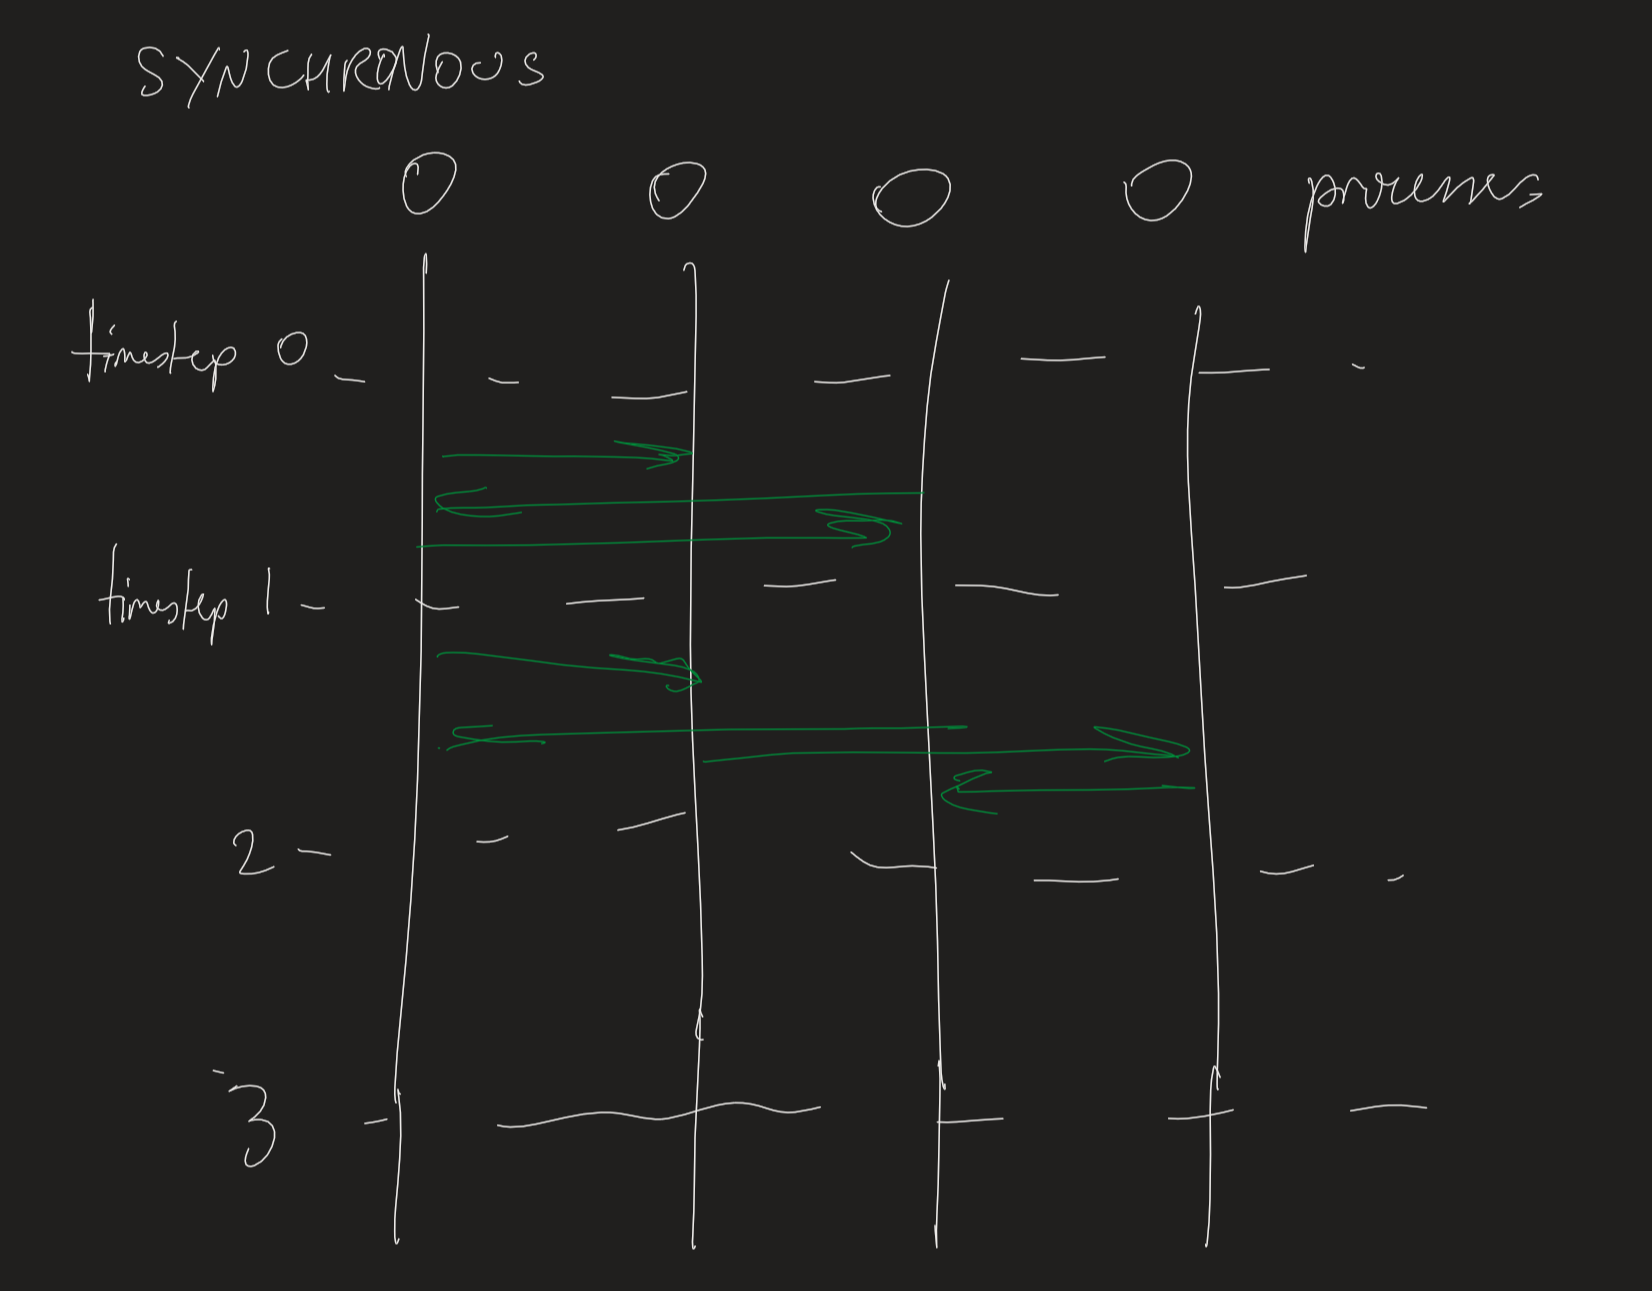 SYNCHRONOUS
processes
timestep 0
timestep 1
2
3